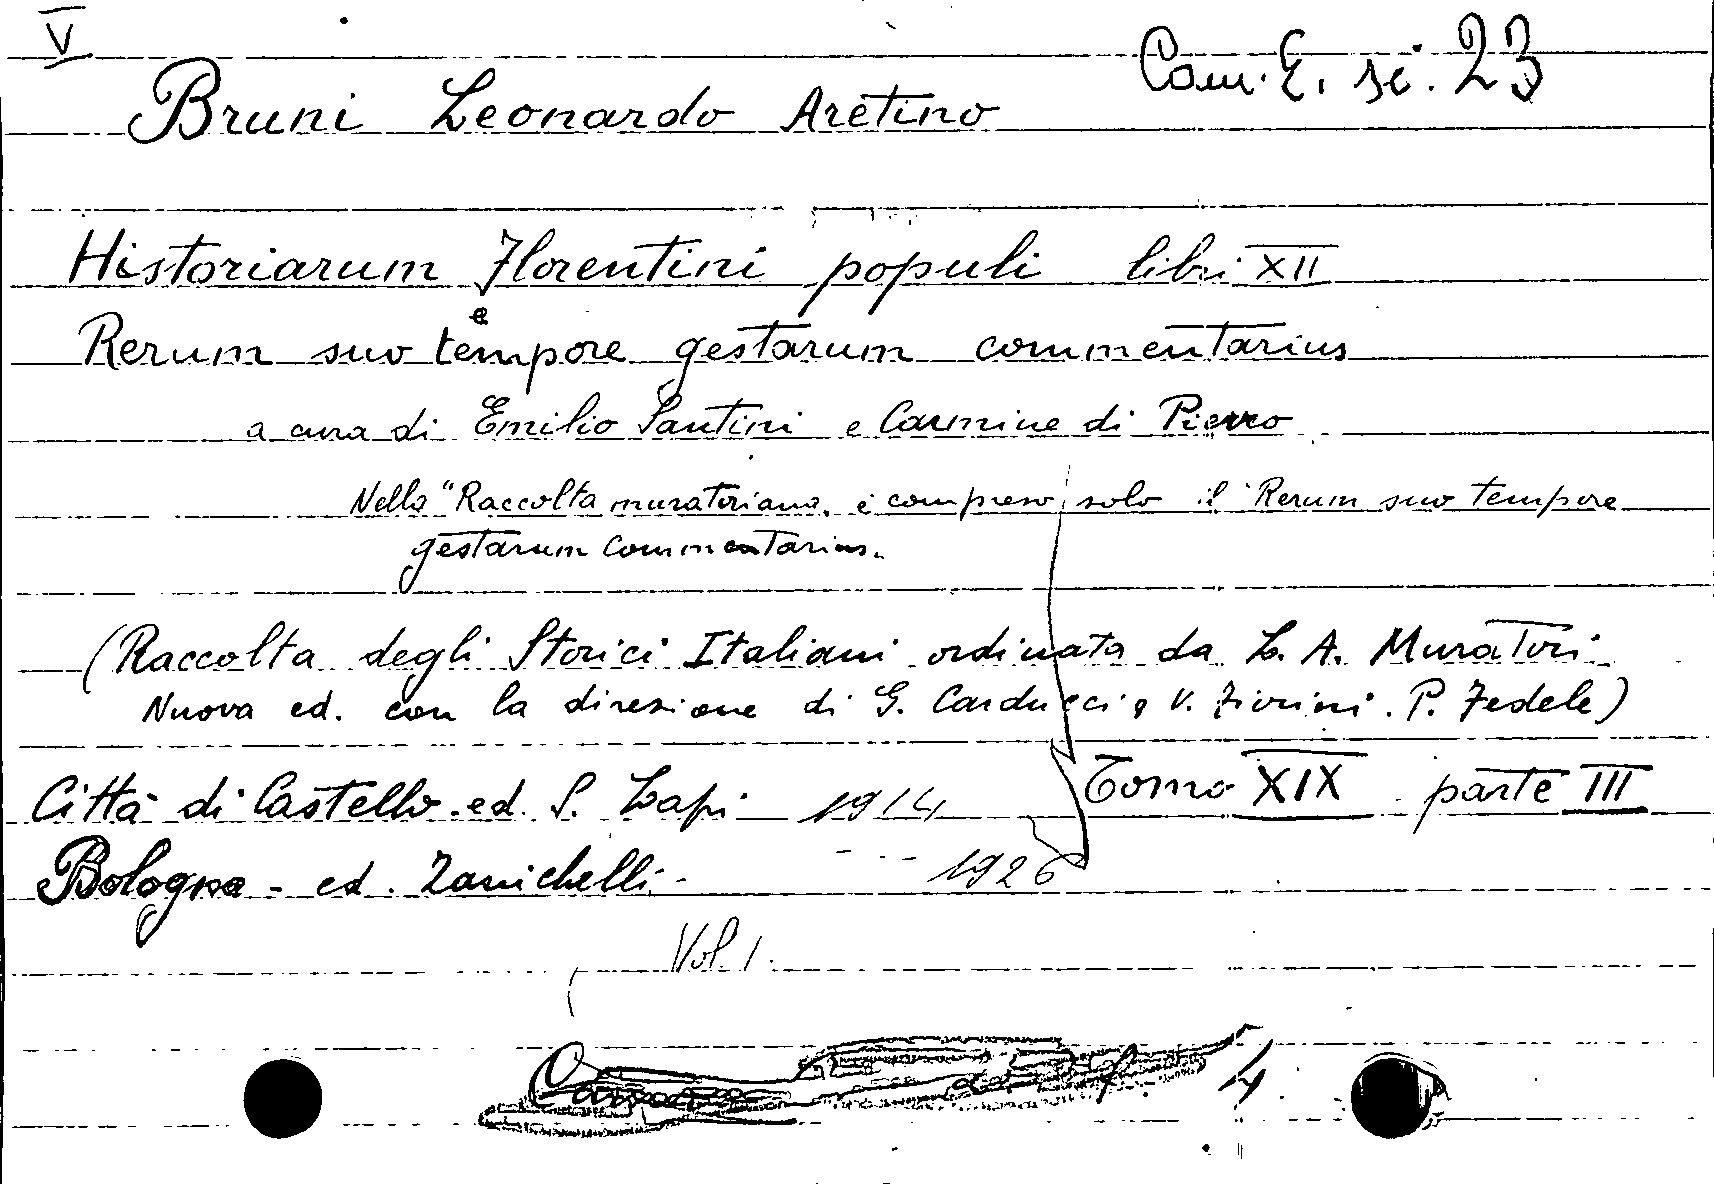 V
Cam. E. sc. 23
Bruni Leonardo Aretino
Historiarum Florentini populi libri XII
e
Rerum suo tempore gestarum commentarius
a cura di Emilio Santini e Carmine di Pierro
Nella "Raccolta muratoriana" è compreso solo il "Rerum suo tempore
gestarum commentarius.
(Raccolta degli Storici Italiani ordinata da L. A. Muratori
Nuova ed. con la direzione di G. Carducci, V. Fiorini. P. Fedele)
Tomo XIX parte III
Città di Castello. ed. S. Lapi 1914
Bologna - ed. Zanichelli - 1926
Vol. 1.
4